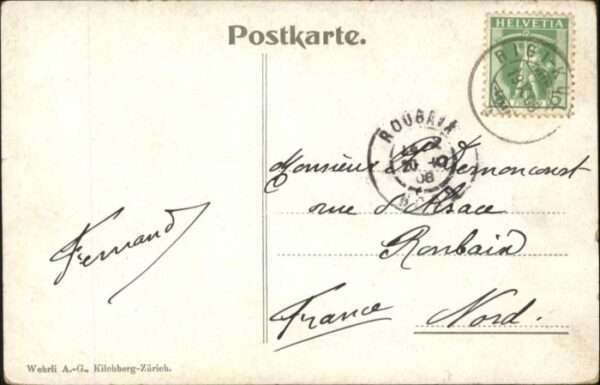 Postkarte.
HELVETIA
RIGI-K
5
ROUBAIX
20
08
Monsieur Demoncourt
rue d'Alsace
Roubaix
France Nord.
Fernand
Wehrli A.-G., Kilchberg-Zürich.